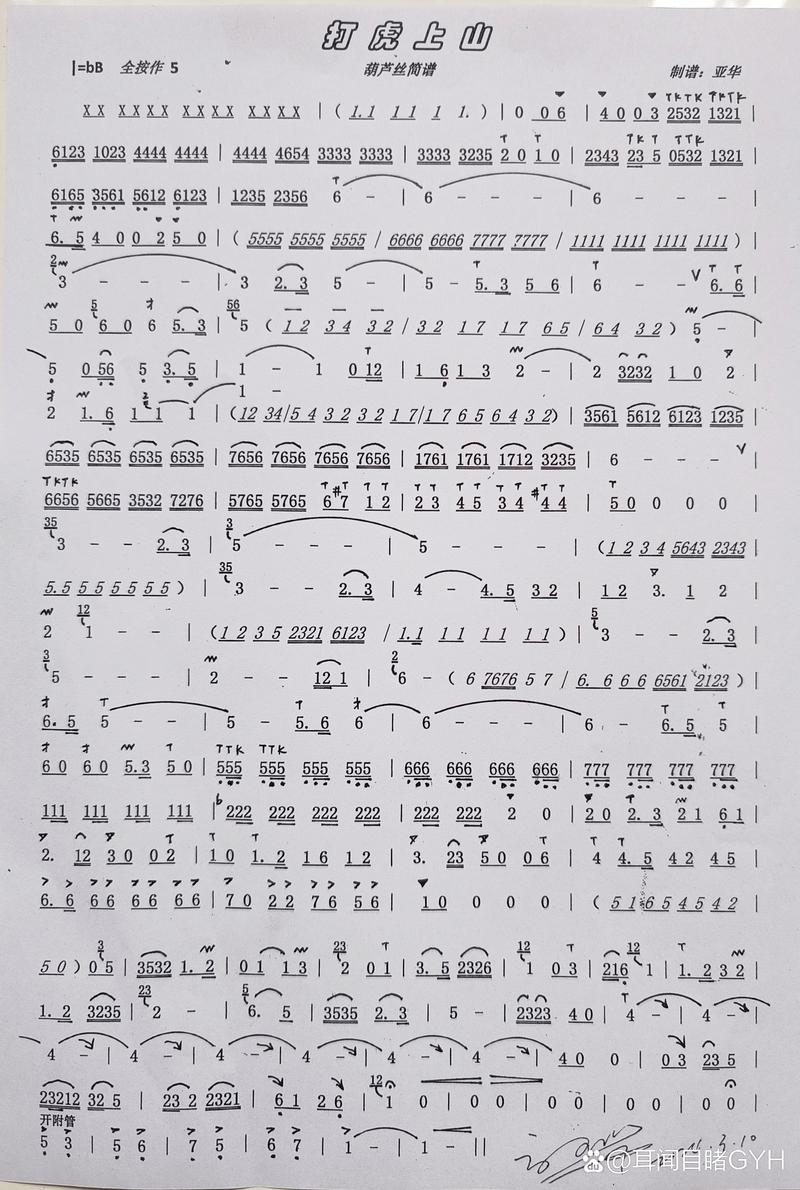 打虎上山
1=bB 全按作 5 葫芦丝简谱 制谱：亚华
X X X X X X X X X X X X X X | ( 1.1 1 1 1 1 1. ) | 0 0 6 | 4 0 0 3 2532 1321 |
6123 1023 4444 4444 | 4444 4654 3333 3333 | 3333 3235 2 0 1 0 | 2343 23 5 0532 1321 |
6165 3561 5612 6123 | 1235 2356 6 - | 6 - - - | 6 - - - |
6. 5 4 0 0 2 5 0 | ( 5555 5555 5555 / 6666 6666 7777 7777 / 1111 1111 1111 1111 ) |
3 - - - | 3 2. 3 5 - | 5 - 5. 3 5 6 | 6 - - 6. 6 |
5 0 6 0 6 5. 3 | 5 ( 1 2 3 4 3 2 / 3 2 1 7 1 7 6 5 / 6 4 3 2 ) 5 - |
5 0 56 5 3. 5 | 1 - 1 0 12 | 1 6 1 3 2 - | 2 3232 1 0 2 |
2 1. 6 1 1 1 1 - | (12 34/5 4 3 2 3 2 1 7/1 7 6 5 6 4 3 2) | 3561 5612 6123 1235 |
6535 6535 6535 6535 | 7656 7656 7656 7656 | 1761 1761 1712 3235 | 6 - - - |
6656 5665 3532 7276 | 5765 5765 6 #7 1 2 | 2 3 4 5 3 4 #4 4 | 5 0 0 0 0 |
3 - - 2. 3 | 5 - - - | 5 - - - | ( 1 2 3 4 5643 2343 |
5. 5 5 5 5 5 5 5 ) | 3 - - 2. 3 | 4 - 4. 5 3 2 | 1 2 3. 1 2 |
2 1 - - | ( 1 2 3 5 2321 6123 / 1. 1 1 1 1 1 1 1 ) | 3 - - 2. 3 |
5 - - - | 2 - - 12 1 | 6 - ( 6 7676 5 7 / 6. 6 6 6 6561 2123 ) |
6. 5 5 - - | 5 - 5. 6 6 | 6 - - - | 6 - 6. 5 5 |
6 0 6 0 5.3 5 0 | 555 555 555 555 | 666 666 666 666 | 777 777 777 777 |
111 111 111 111 | b222 222 222 222 | 222 222 2 0 | 2 0 2. 3 2 1 6 1 |
2. 12 3 0 0 2 | 1 0 1. 2 1 6 1 2 | 3. 23 5 0 0 6 | 4 4. 5 4 2 4 5 |
6. 6 6 6 6 6 6 6 | 7 0 2 2 7 6 5 6 | 1 0 0 0 0 | ( 5 1 6 5 4 5 4 2 |
5 0 ) 0 5 | 3532 1. 2 | 0 1 1 3 | 2 0 1 | 3. 5 2326 | 1 0 3 | 216 1 | 1. 2 3 2 |
1. 2 3235 | 2 - | 6. 5 | 3535 2. 3 | 5 - | 2323 4 0 | 4 - | 4 - |
4 - | 4 - | 4 - | 4 - | 4 - | 4 - | 4 0 0 | 0 3 23 5 |
23212 32 5 | 23 2 2321 | 6 1 2 6 | 1 0 | 0 0 | 0 0 | 0 0 | 0 0 |
开附管
5 3 | 5 6 | 7 5 | 6 7 | 1 - | 1 - ||
@耳闻目睹GYH